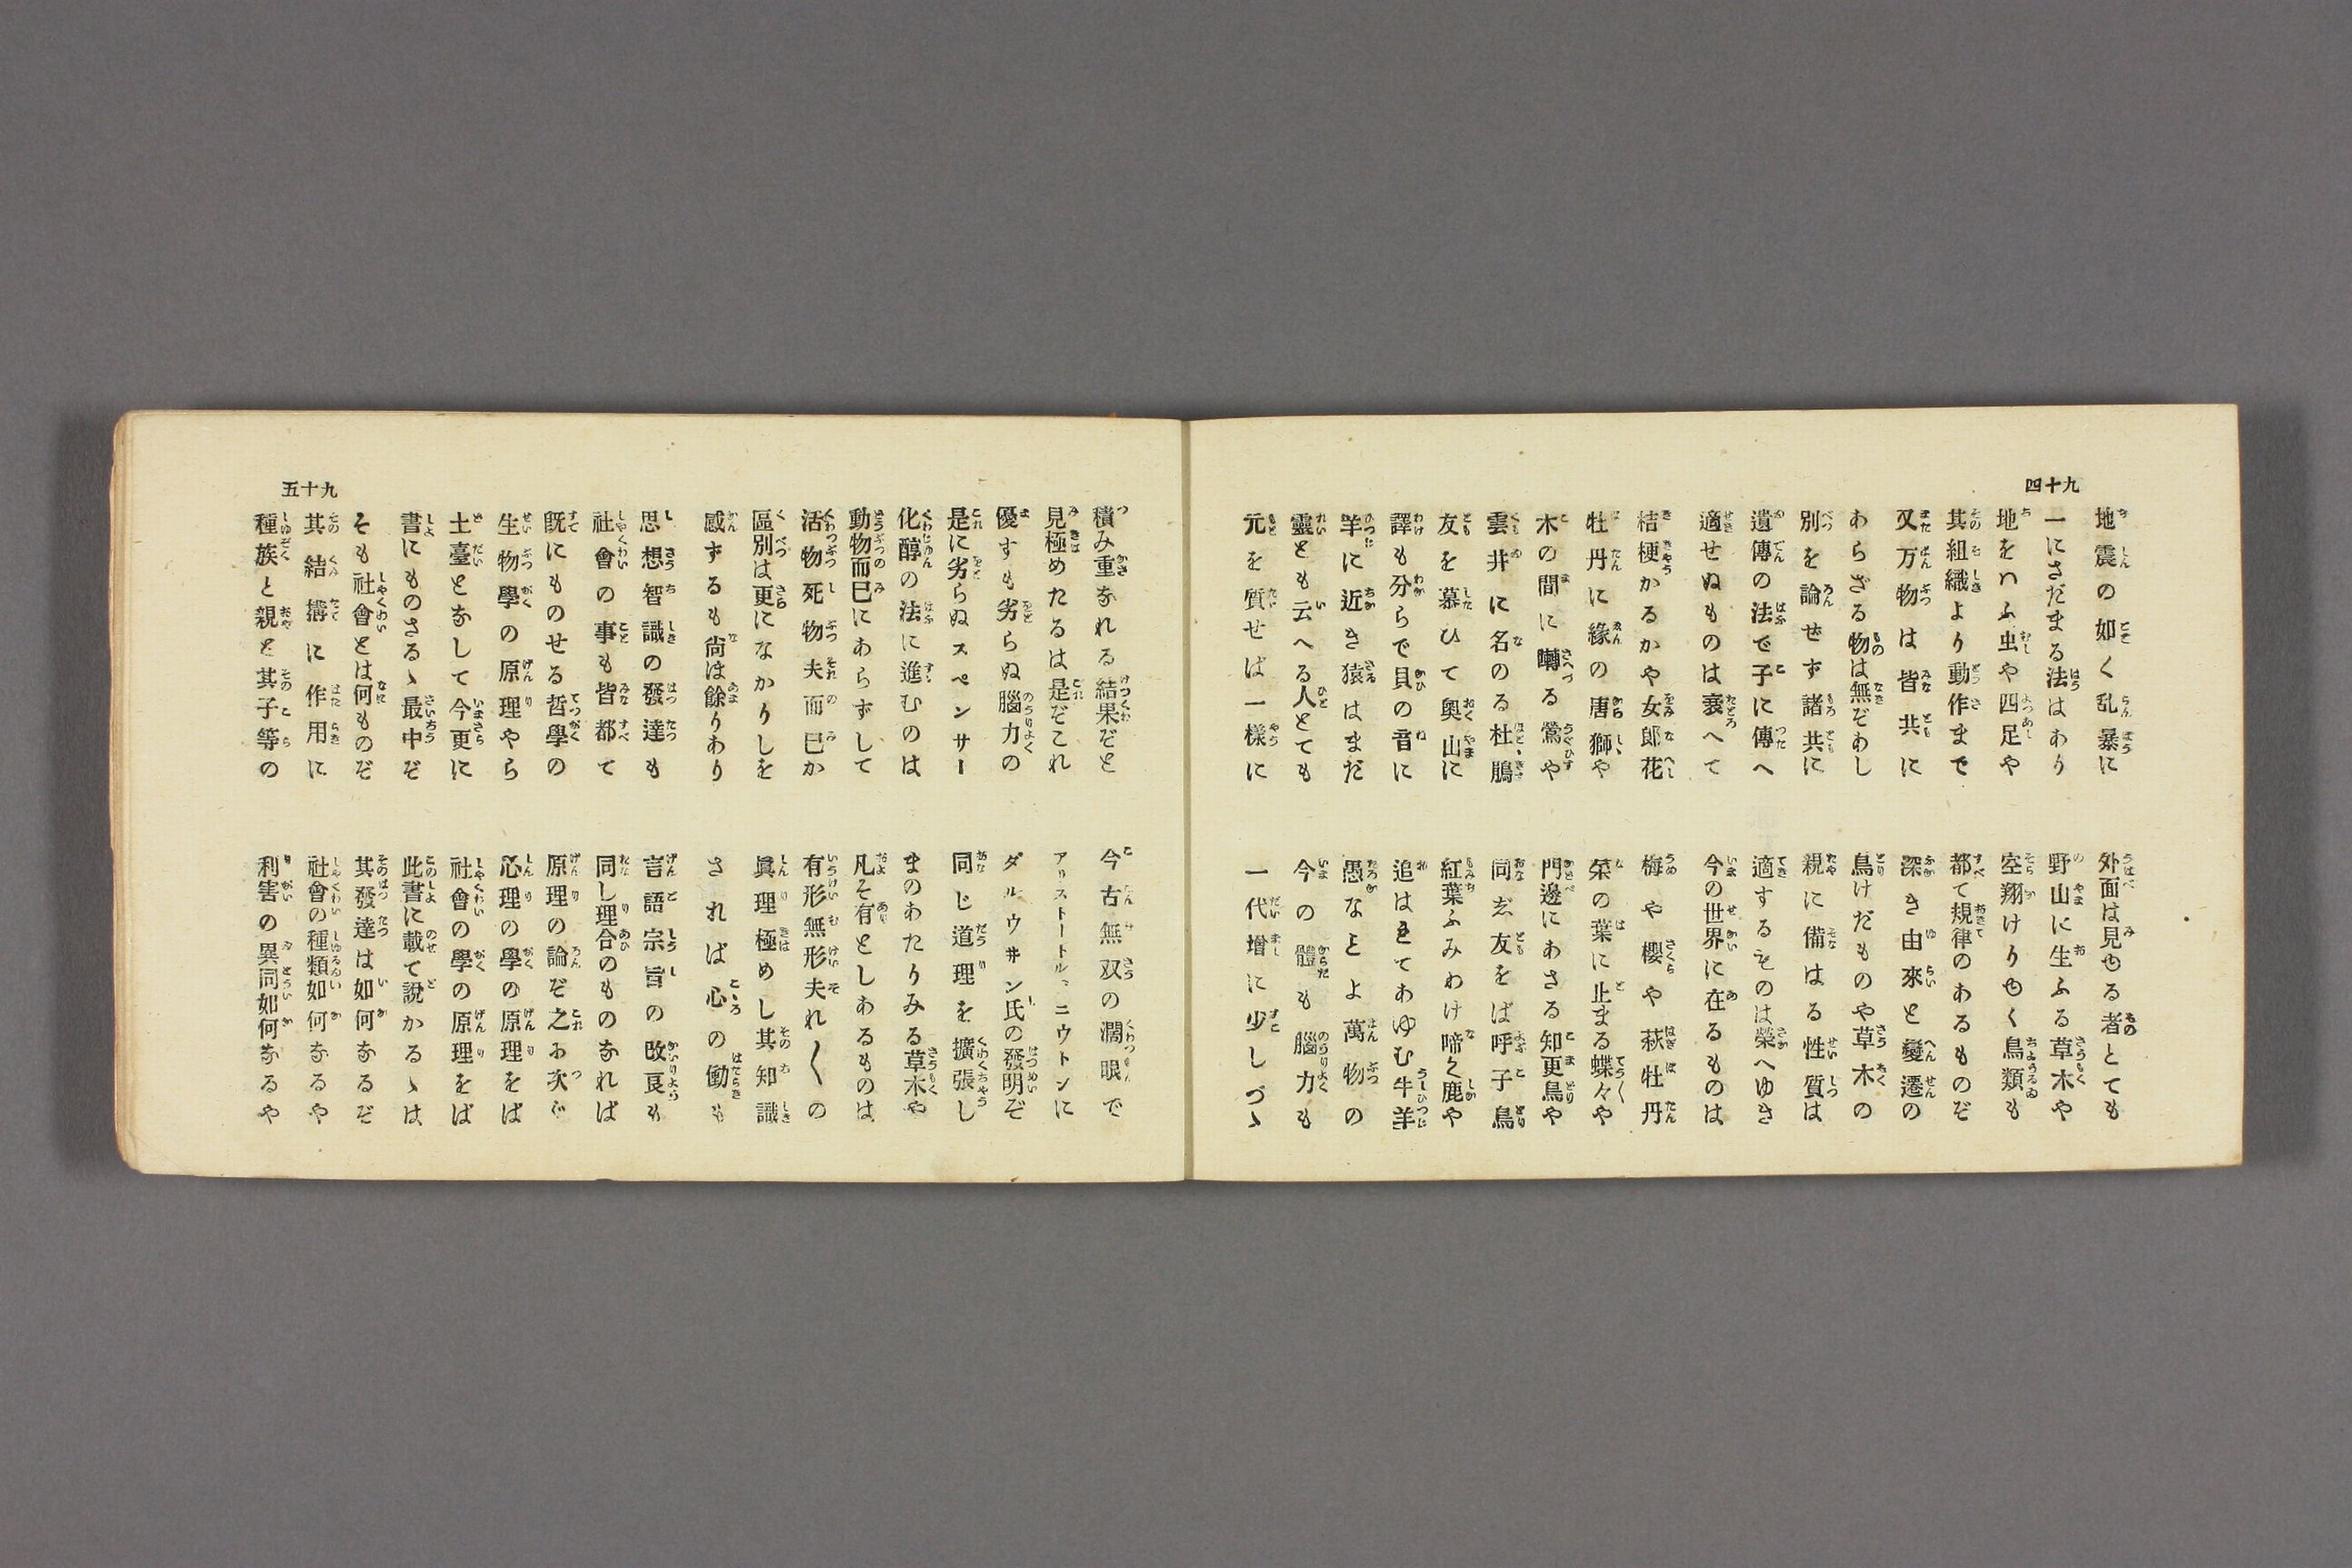 九十四
地震の如く乱暴に
外面は見ゆる者とても
一にさだまる法はあり
野山に生ふる草木や
地をハふ虫や四足や
空翔けりゆく鳥類も
其組織より動作まで
都て規律のあるものぞ
又万物は皆共に
深き由來と變遷の
あらざる物は無ぞわし
鳥けだものや草木の
別を論ぜず諸共に
親に備はる性質は
遺傳の法で子に傳へ
適するものは榮へゆき
適せぬものは衰へて
今の世界に在るものは
桔梗かるかや女郎花
梅や櫻や萩牡丹
牡丹に緣の唐獅や
菜の葉に止まる蝶々や
木の間に囀る鶯や
門邊にあさる知更鳥や
雲井に名のる杜鵑
同志友をば呼子鳥
友を慕ひて奧山に
紅葉ふみわけ啼く鹿や
譯も分らで貝の音に
追はれてあゆむ牛羊
羊に近き猿はまだ
愚なことよ萬物の
靈とも云へる人とても
今の體も腦力も
元を質せば一樣に
一代增に少しづゝ
積み重なれる結果ぞと
今古無双の濶眼で
見極めたるは是ぞこれ
アリストートル、ニウトンに
優すも劣らぬ腦力の
ダルウ井ン氏の發明ぞ
是に劣らぬスペンサー
同じ道理を擴張し
化醇の法に進むのは
まのわたりみる草木や
動物而已にあらずして
凡そ有としあるものは
活物死物夫而已か
有形無形夫れ〱の
區別は更になかりしを
眞理極めし其知識
感ずるも尙は餘りわり
されば心の働も
思想智識の發達も
言語宗旨の改良も
社會の事も皆都て
同し理合のものなれば
既にものせる哲學の
原理の論ぞ之に次ぐ
生物學の原理やら
心理の學の原理をば
土臺となして今更に
社會の學の原理をば
書にものさるゝ最中ぞ
此書に載て說かるゝは
そも社會とは何ものぞ
其發達は如何なるぞ
其結搆に作用に
社會の種類如何なるや
種族と親と其子等の
利害の異同如何なるや
九十五